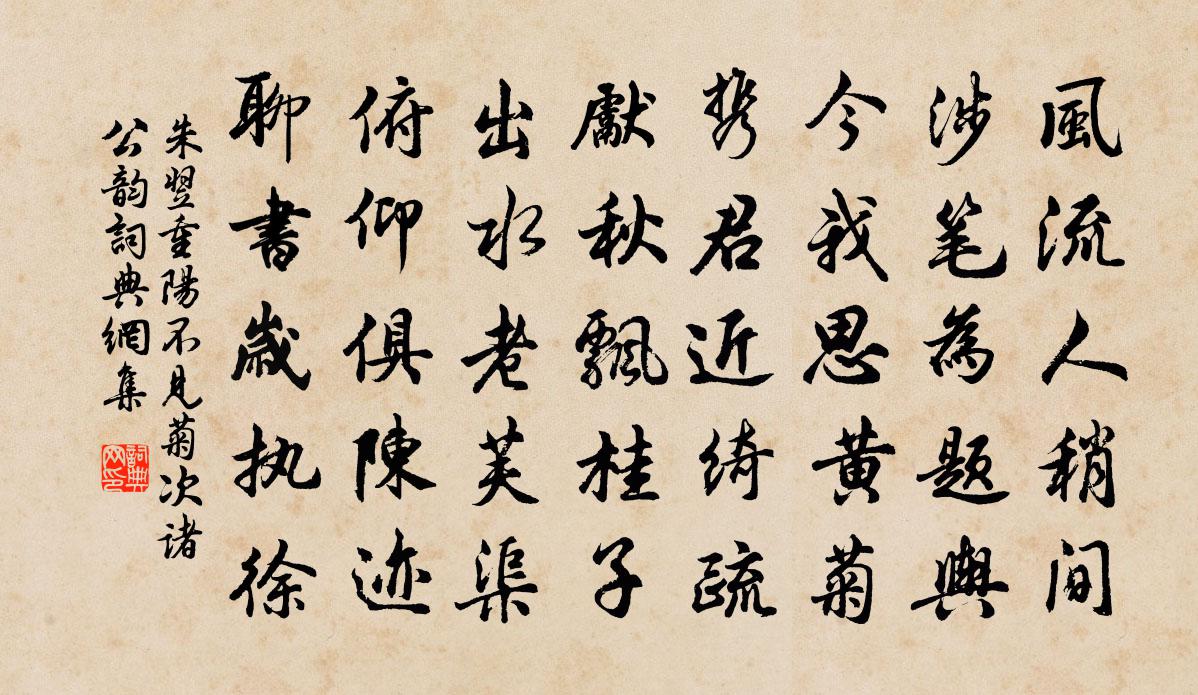 風流人稍间
涉笔為题輿
今我思黄菊
携君近绮疏
獻秋飄桂子
出水老芙渠
俯仰俱陳迹
聊書歲执徐
朱翌重陽不見菊次诸
公韵詞典網集
詞典
网印